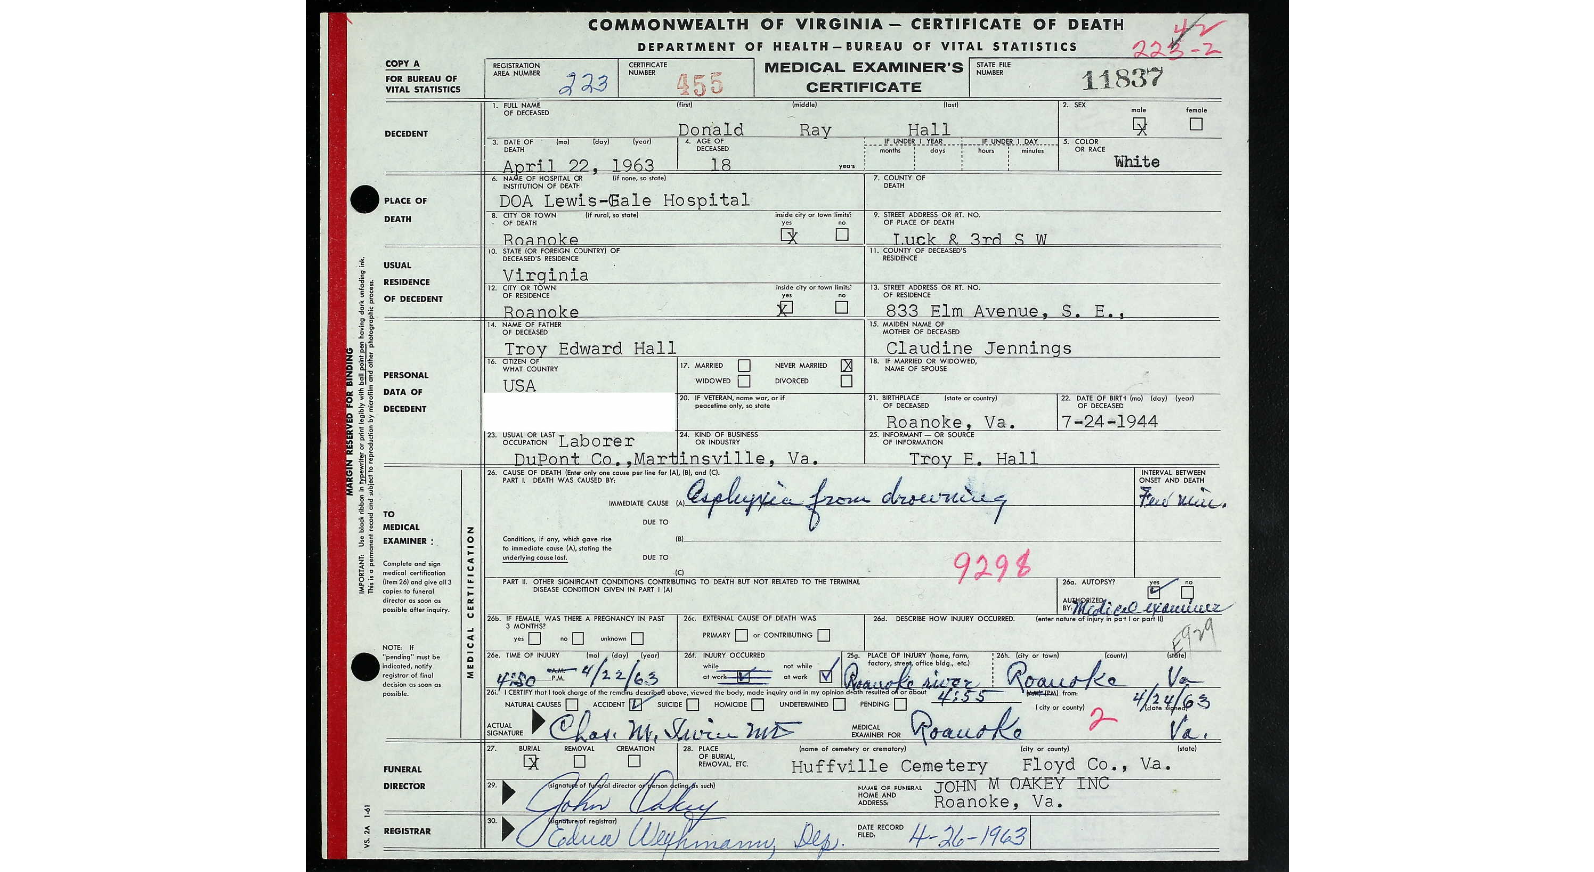 COMMONWEALTH OF VIRGINIA — CERTIFICATE OF DEATH
DEPARTMENT OF HEALTH — BUREAU OF VITAL STATISTICS
42
223-2
COPY A
FOR BUREAU OF
VITAL STATISTICS
REGISTRATION
AREA NUMBER 223
CERTIFICATE
NUMBER 455
MEDICAL EXAMINER'S
CERTIFICATE
STATE FILE
NUMBER 11837
DECEDENT
1. FULL NAME
OF DECEASED
(first) (middle) (last)
Donald Ray Hall
2. SEX
male female
X
3. DATE OF
DEATH
(mo) (day) (year)
April 22, 1963
4. AGE OF
DECEASED
18 years
IF UNDER 1 YEAR IF UNDER 1 DAY
months days hours minutes
5. COLOR
OR RACE
White
PLACE OF
DEATH
6. NAME OF HOSPITAL OR (if none, so state)
INSTITUTION OF DEATH
DOA Lewis-Gale Hospital
7. COUNTY OF
DEATH
8. CITY OR TOWN (if rural, so state)
OF DEATH
inside city or town limits?
yes no
X
Roanoke
9. STREET ADDRESS OR RT. NO.
OF PLACE OF DEATH
Luck & 3rd S W
USUAL
RESIDENCE
OF DECEDENT
10. STATE (OR FOREIGN COUNTRY) OF
DECEASED'S RESIDENCE
Virginia
11. COUNTY OF DECEASED'S
RESIDENCE
12. CITY OR TOWN
OF RESIDENCE
inside city or town limits?
yes no
X
Roanoke
13. STREET ADDRESS OR RT. NO.
OF RESIDENCE
833 Elm Avenue, S. E.,
PERSONAL
DATA OF
DECEDENT
14. NAME OF FATHER
OF DECEASED
Troy Edward Hall
15. MAIDEN NAME OF
MOTHER OF DECEASED
Claudine Jennings
16. CITIZEN OF
WHAT COUNTRY
USA
17. MARRIED NEVER MARRIED X
WIDOWED DIVORCED
18. IF MARRIED OR WIDOWED,
NAME OF SPOUSE
20. IF VETERAN, name war, or if
peacetime only, so state
21. BIRTHPLACE (state or country)
OF DECEASED
Roanoke, Va.
22. DATE OF BIRTH (mo) (day) (year)
OF DECEASED
7-24-1944
23. USUAL OR LAST
OCCUPATION Laborer
24. KIND OF BUSINESS
OR INDUSTRY
DuPont Co., Martinsville, Va.
25. INFORMANT — OR SOURCE
OF INFORMATION
Troy E. Hall
MARGIN RESERVED FOR BINDING
IMPORTANT: Use black ribbon in typewriter or print legibly with ball point pen having dark unfading ink.
This is a permanent record and subject to reproduction by microfilm and other photographic process.
VS. 2A 1-61
TO
MEDICAL
EXAMINER:
Complete and sign
medical certification
(Item 26) and give all 3
copies to funeral
director as soon as
possible after inquiry.
NOTE: If
"pending" must be
indicated, notify
registrar of final
decision as soon as
possible.
MEDICAL CERTIFICATION
26. CAUSE OF DEATH (Enter only one cause per line for (A), (B), and (C).
PART I. DEATH WAS CAUSED BY:
IMMEDIATE CAUSE (A) Asphyxia from drowning
INTERVAL BETWEEN
ONSET AND DEATH
Few min.
DUE TO
(B)
Conditions, if any, which gave rise
to immediate cause (A), stating the
underlying cause last.
DUE TO
(C)
9298
PART II. OTHER SIGNIFICANT CONDITIONS CONTRIBUTING TO DEATH BUT NOT RELATED TO THE TERMINAL
DISEASE CONDITION GIVEN IN PART I (A)
26a. AUTOPSY?
yes no
AUTHORIZED
BY: Medical examiner
26b. IF FEMALE, WAS THERE A PREGNANCY IN PAST
3 MONTHS?
yes no unknown
26c. EXTERNAL CAUSE OF DEATH WAS
PRIMARY or CONTRIBUTING
26d. DESCRIBE HOW INJURY OCCURRED. (enter nature of injury in part I or part II)
E929
26e. TIME OF INJURY (mo) (day) (year)
4:50 A.M. P.M. 4/22/63
26f. INJURY OCCURRED
while
at work
not while
at work
25g. PLACE OF INJURY (home, farm,
factory, street, office bldg., etc.)
Roanoke river
26h. (city or town) (county) (state)
Roanoke Va
26i. I CERTIFY that I took charge of the remains described above, viewed the body, made inquiry and in my opinion death resulted on or about 4:55 (PM) from:
NATURAL CAUSES ACCIDENT SUICIDE HOMICIDE UNDETERMINED PENDING
(city or county)
2
4/24/63
(date signed)
ACTUAL
SIGNATURE
Chas. M. Irvin MD
MEDICAL
EXAMINER FOR
Roanoke Va.
FUNERAL
DIRECTOR
27. BURIAL REMOVAL CREMATION
X
28. PLACE
OF BURIAL,
REMOVAL, ETC.
(name of cemetery or crematory) (city or county) (state)
Huffville Cemetery Floyd Co., Va.
29. (signature of funeral director or person acting as such)
John Oakey
NAME OF FUNERAL
HOME AND
ADDRESS:
JOHN M OAKEY INC
Roanoke, Va.
REGISTRAR
30. (signature of registrar)
Edna Weyhmann, Dep.
DATE RECORD
FILED:
4-26-1963